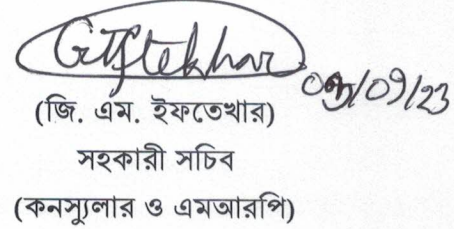 GIftekhar
/09/23
(জি. এম. ইফতেখার)
সহকারী সচিব
(কনস্যুলার ও এমআরপি)